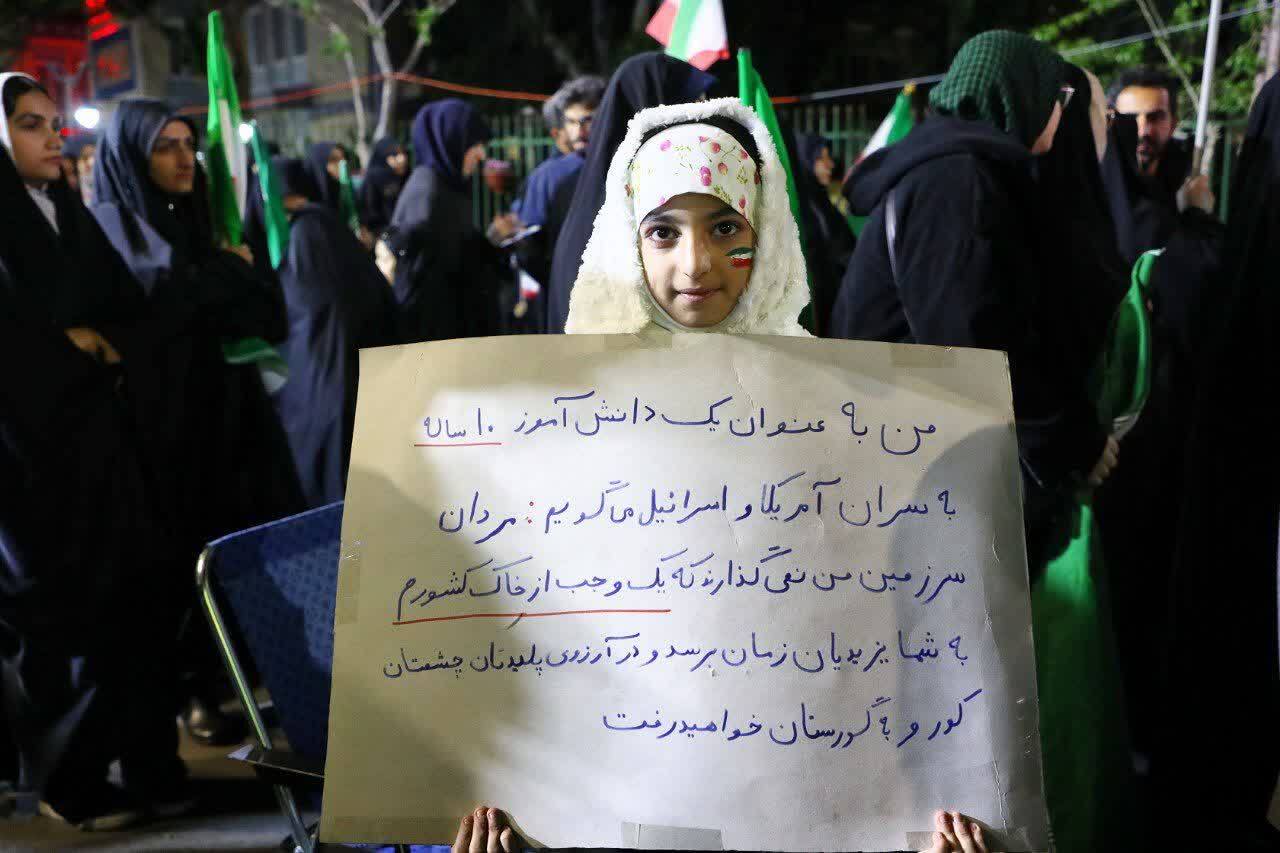 من به عنوان یک دانش آموز ۱۰ ساله
به سران آمریکا و اسرائیل می‌گویم : مردان
سرزمین من نمی‌گذارند که یک وجب از خاک کشورم
به شما یزیدیان زمان برسد و در آرزوی پلیدتان چشمتان
کور و به گورستان خواهید رفت